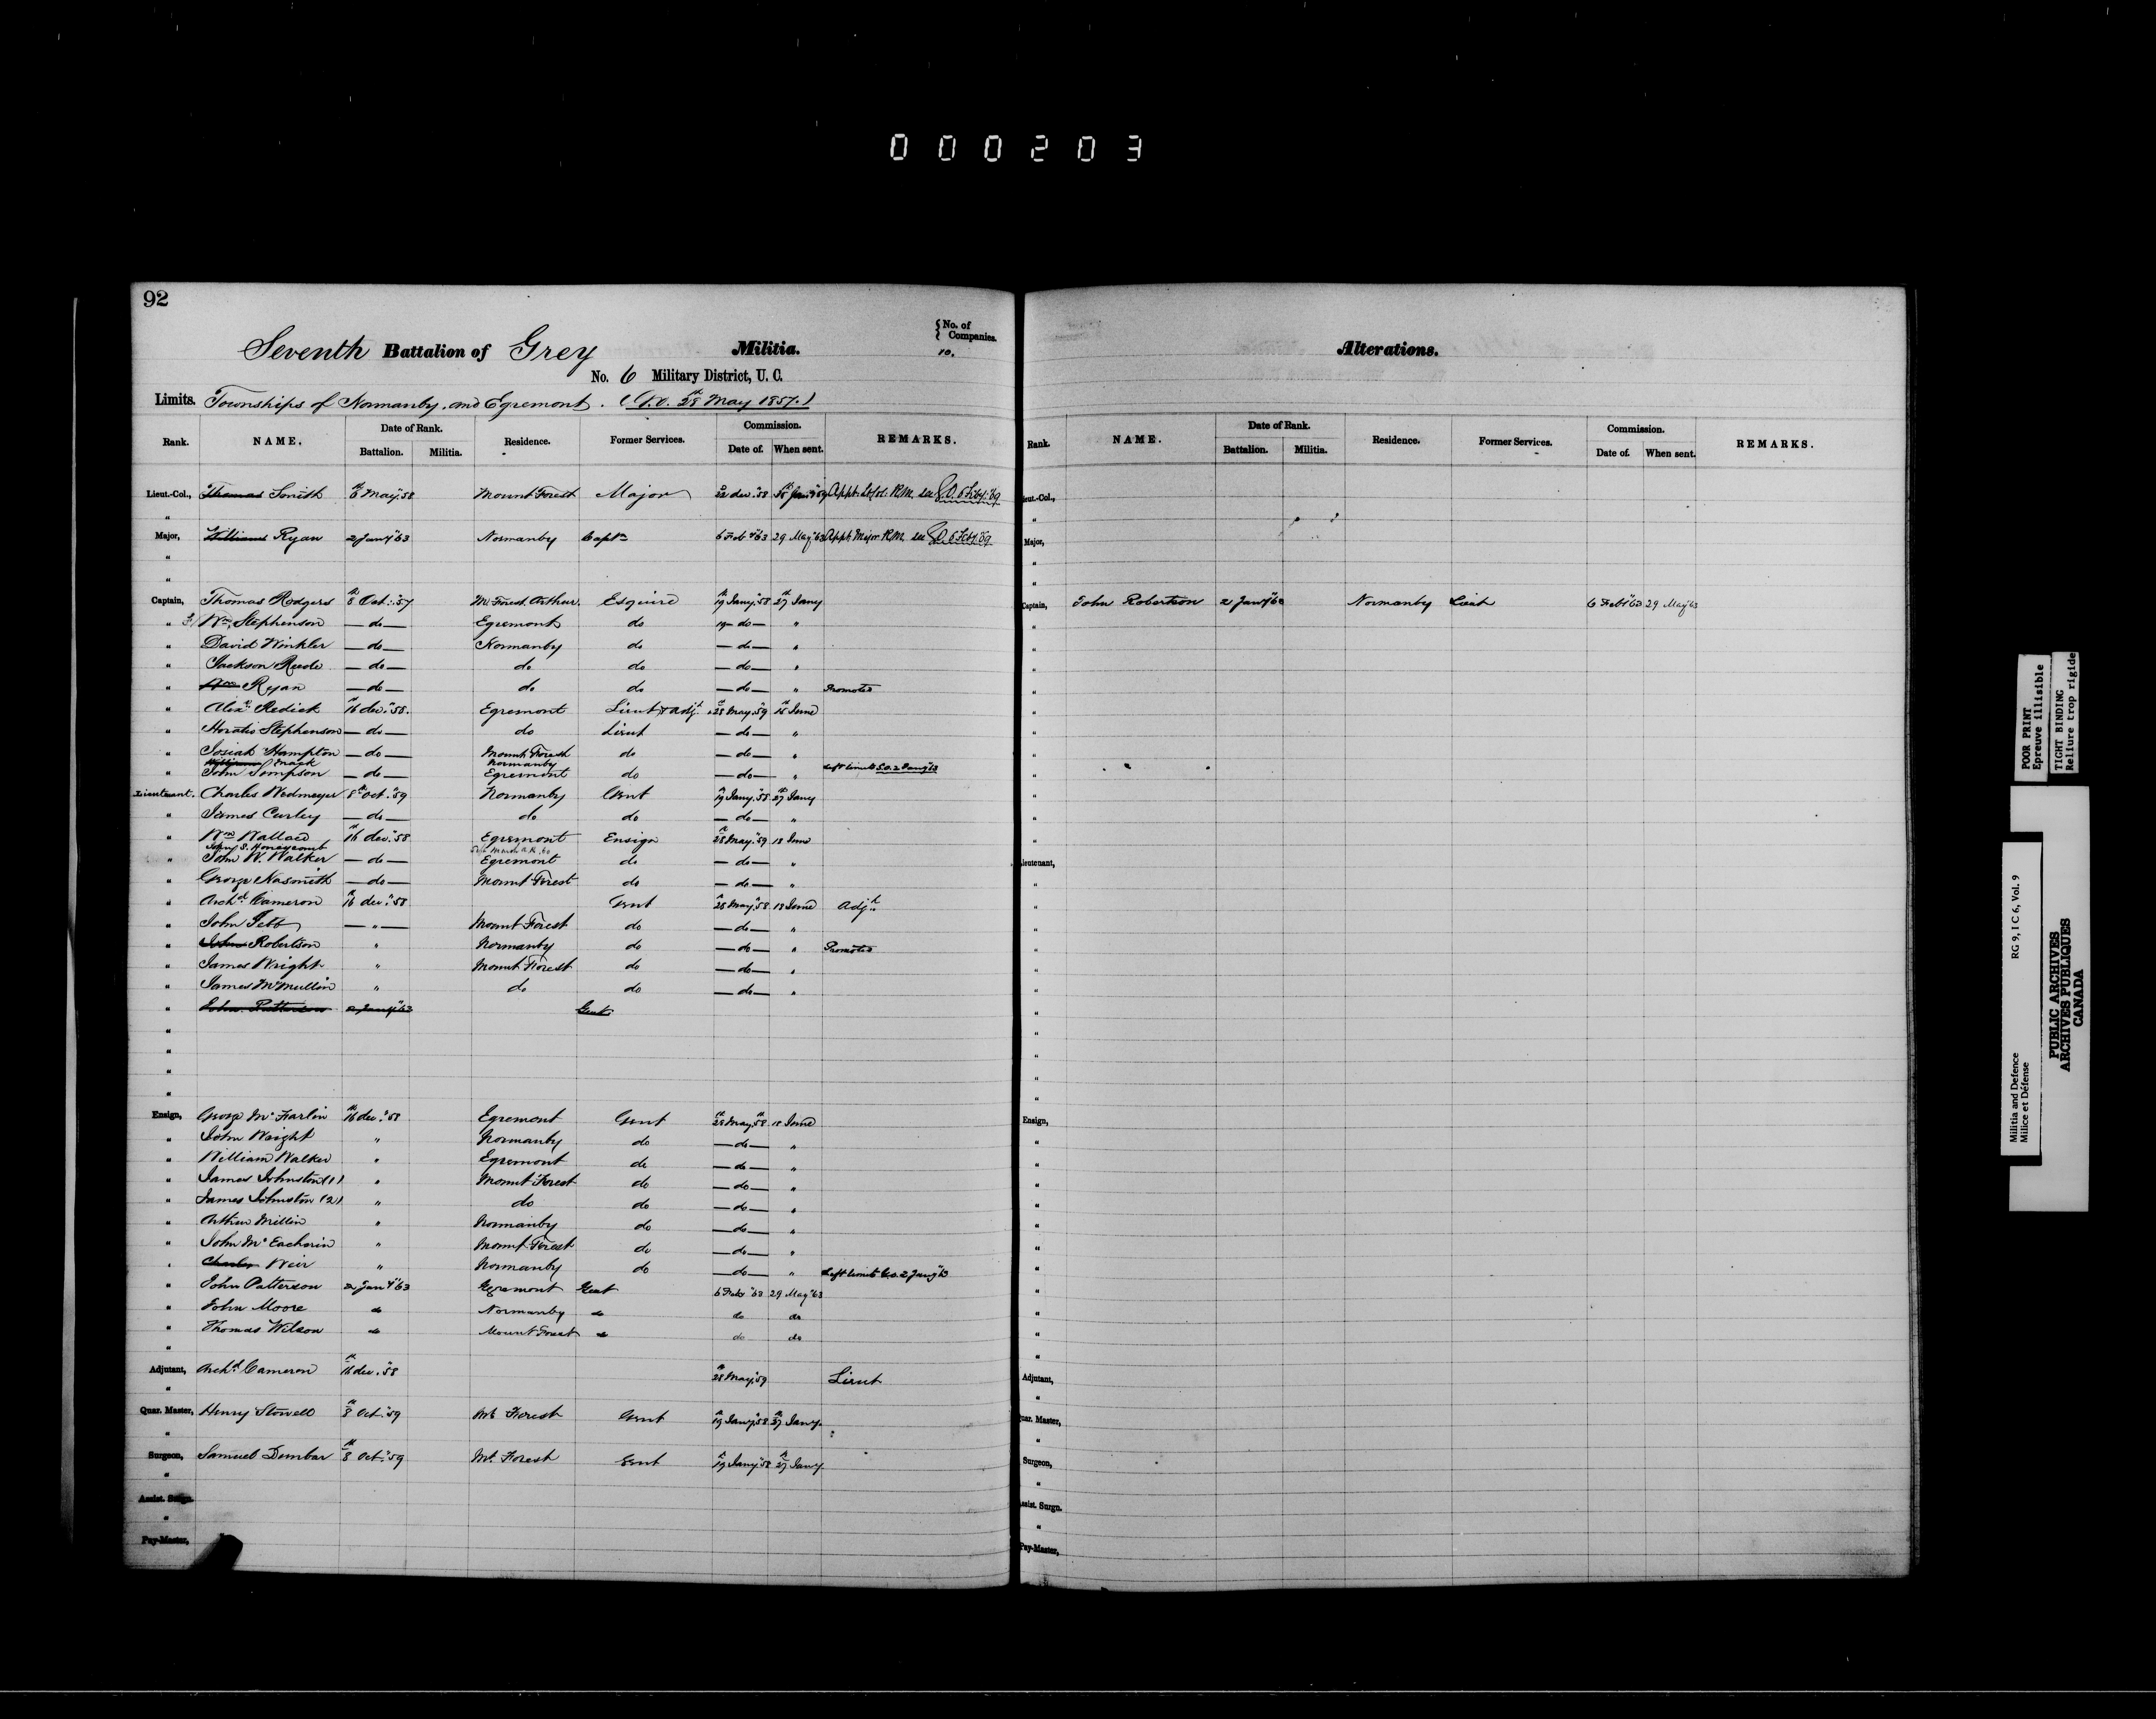 000203
92
{ No. of Companies.
10.
Seventh Battalion of Grey Militia.
No. 6 Military District, U. C.
Limits. Townships of Normanby, and Egremont. ( 28th May 1857.)
Rank. NAME. Date of Rank. Residence. Former Services. Commission. REMARKS.
Battalion. Militia. Date of. When sent.
Lieut.-Col., Thomas Smith 6th May "58 Mount Forest Major 22 Dec. "58 Appt. Lt Col. R.M. see G.O. 6 Feby "69
"
Major, William Ryan 2 Jany "63 Normanby Captn 6 Feb "63 29 May "63 Appt Major R.M. see G.O. 6 Feby "69
"
"
Captain, Thomas Rodgers 8th Oct. "57 Mt Forest. Arthur. Esquire 19th Jany "58 27th Jany
" Wm. Stephenson — do — Egremont do 19 — do — "
" David Winkler — do — Normanby do — do — "
" Jackson — do — do do — do — "
" Wm Ryan — do — do do — do — " Promoted
" Alexr. Redick 16th Dec. "58. Egremont Lieut & Adjt. 28th May "59 June
" Horatio Stephenson — do — do Lieut — do — "
" Josiah Hampton — do — Mount Forest do — do — "
William Mack Normanby
" John Sempson — do — Egremont do — do — " Left limits G.O. 2 Jany "63
Lieutenant. Charles Wedmeyer 8th Oct. "59 Normanby Gent 19th Jany "58 27th Jany
" James Curley — do — do do — do — "
" Wm Wallace 16th Dec. "58 Egremont Ensign 28th May "59 18 June
John S. Honeycomb
" John W. Walker — do — Egremont do — do — "
" George Nasmith — do — Mount Forest do — do — "
" Archd. Cameron 16th Dec. "58 Gent 28th May "58 18 June Adjt.
" John — " — Mount Forest do — do — "
" John Robertson " Normanby do — do — " Promoted
" James Wright " Mount Forest do — do — "
" James McMullin " do do — do — "
" John Patterson 2 Jany "63 Gent
"
"
"
"
Ensign, George McFarlin 16th Dec. "58 Egremont Gent 28th May "58 18 June
" John Wright " Normanby do — do — "
" William Walker " Egremont do — do — "
" James Johnston (1) " Mount Forest do — do — "
" James Johnston (2) " do do — do — "
" Arthur Millin " Normanby do — do — "
" John McEacharin " Mount Forest do — do — "
" Charles Weir " Normanby do — do — " Left limits G.O. 2 Jany "63
" John Patterson 2 Jany "63 Egremont Gent 6 Feby "63 29 May "63
" John Moore do Normanby do do do
" Thomas Wilson do Mount Forest do do do
"
Adjutant, Archd. Cameron 16th Dec. "58 28th May "59 Lieut
"
Quar. Master, Henry Stowell 8th Oct. "59 Mt Forest Gent 19th Jany "58 27th Jany
"
Surgeon, Samuel Dunbar 8th Oct. "59 Mt. Forest Gent 19th Jany "58 27th Jany
"
Assist. Surgn.
"
Pay-Master,
Alterations.
Rank. NAME. Date of Rank. Residence. Former Services. Commission. REMARKS.
Battalion. Militia. Date of. When sent.
Lieut.-Col.,
"
Major,
"
"
Captain, John Robertson 2 Jany "63 Normanby Lieut 6 Feby "63 29 May "63
"
"
"
"
"
"
"
"
"
"
"
Lieutenant,
"
"
"
"
"
"
"
"
"
"
"
Ensign,
"
"
"
"
"
"
"
"
"
"
"
Adjutant,
"
Quar. Master,
"
Surgeon,
"
Assist. Surgn.
"
Pay-Master,
POOR PRINT
Epreuve illisible
TIGHT BINDING
Reliure trop rigide
Militia and Defence
Milice et Défense
RG 9, I C 6, Vol. 9
PUBLIC ARCHIVES
ARCHIVES PUBLIQUES
CANADA